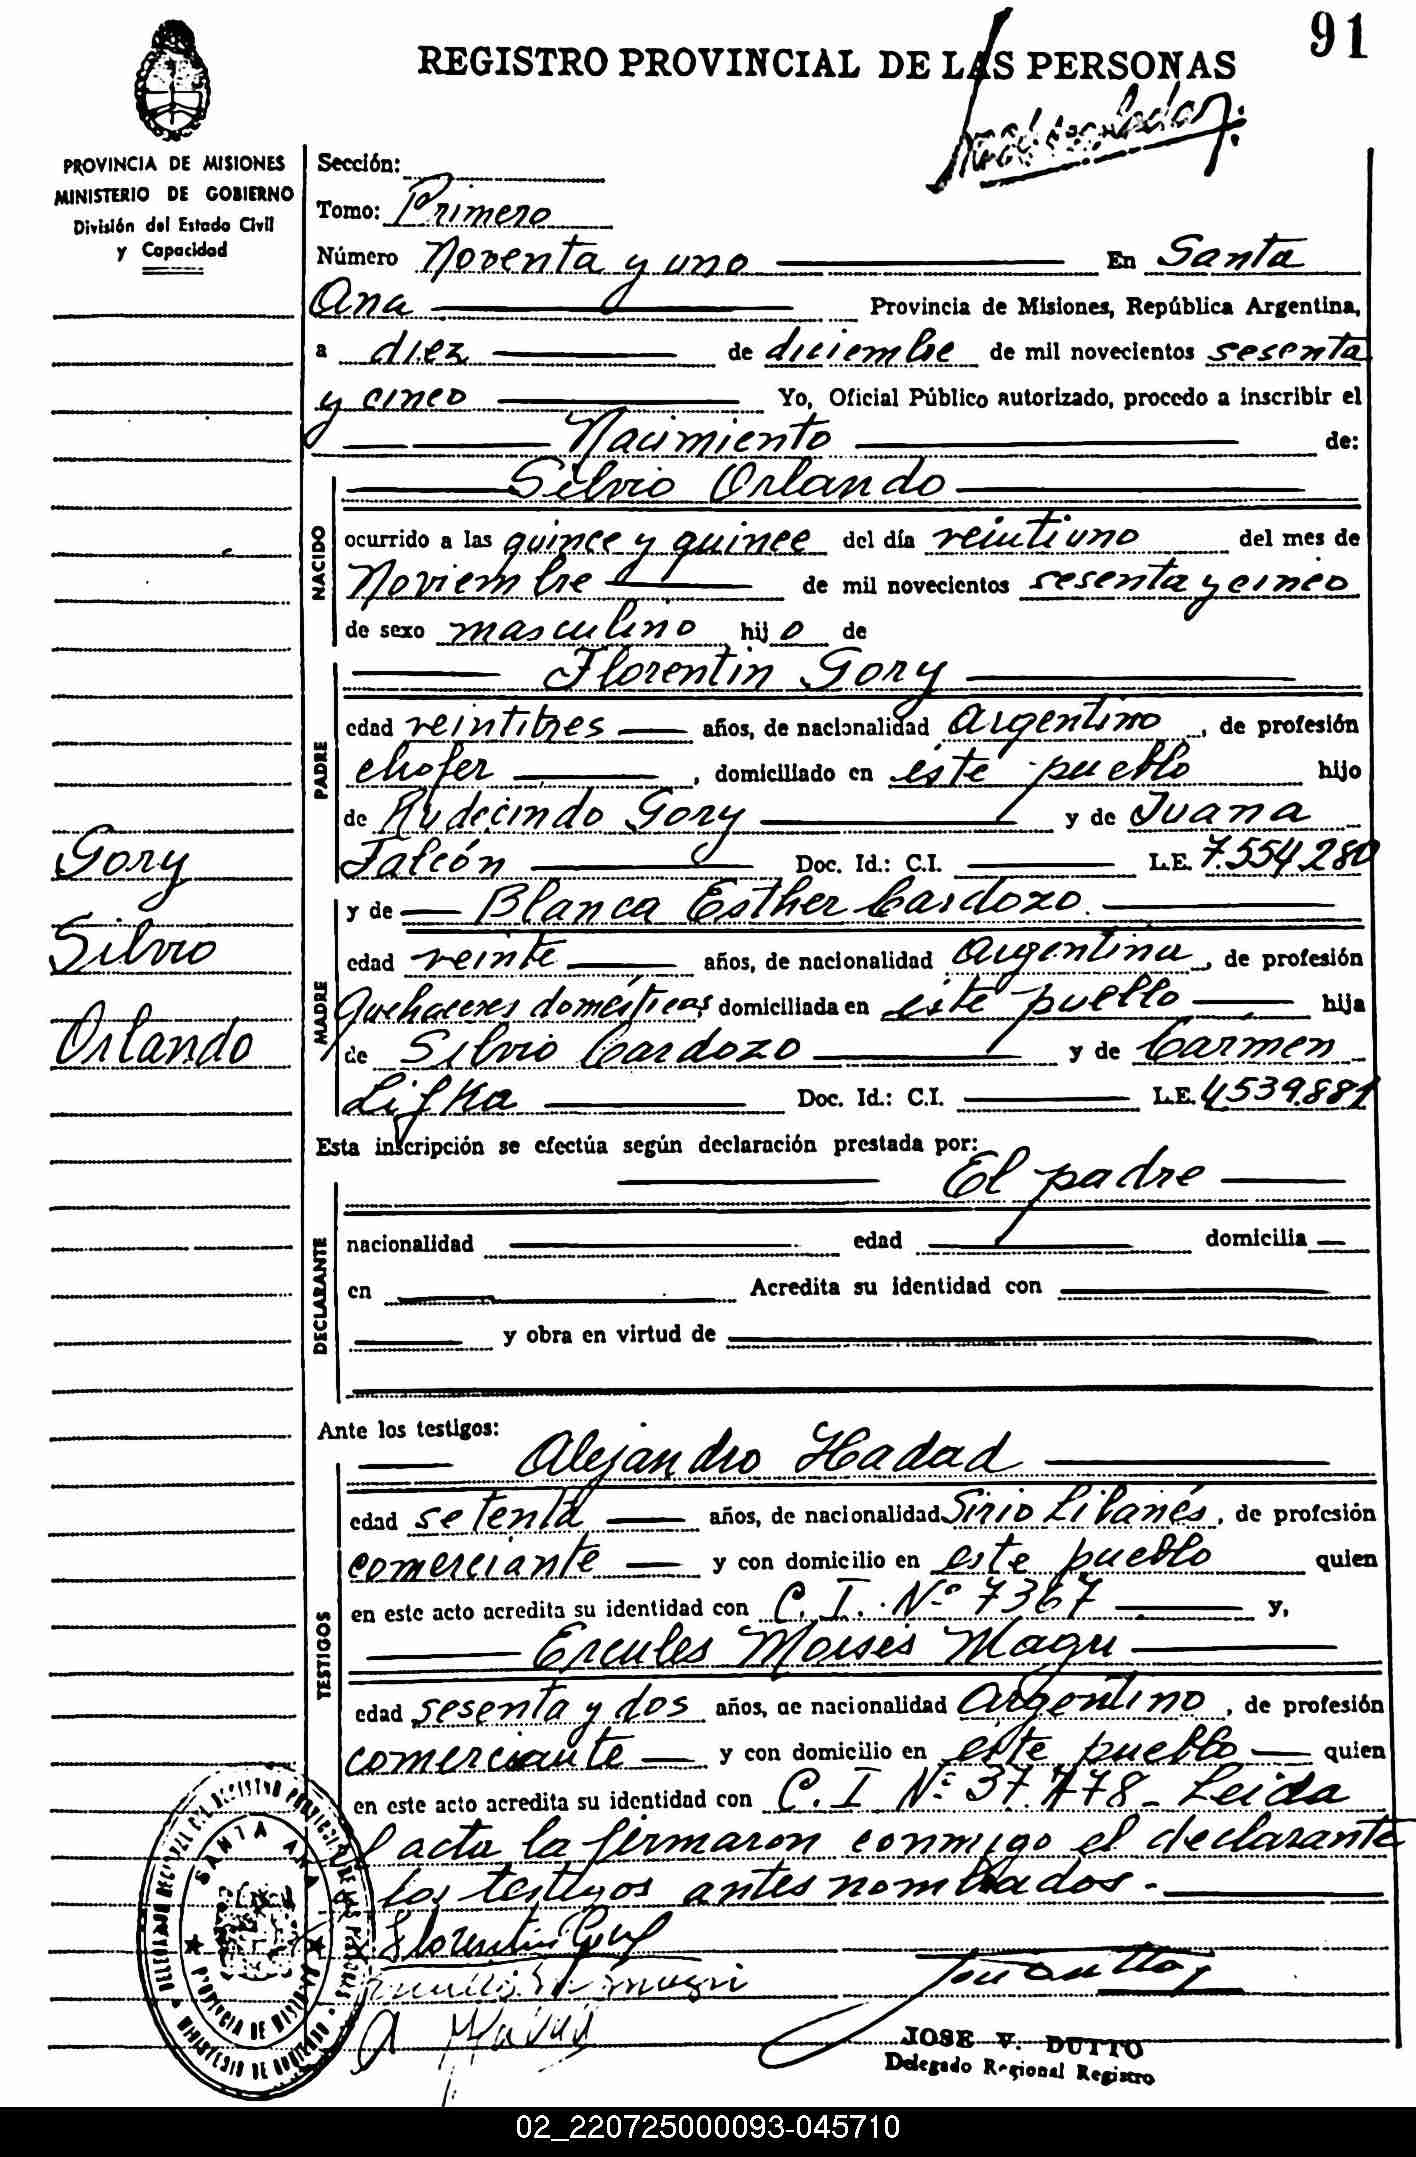 91
REGISTRO PROVINCIAL DE LAS PERSONAS
PROVINCIA DE MISIONES
MINISTERIO DE GOBIERNO
División del Estado Civil
y Capacidad
Sección:
Tomo: Primero
Número Noventa y uno En Santa
Ana Provincia de Misiones, República Argentina,
a diez de diciembre de mil novecientos sesenta
y cinco Yo, Oficial Público autorizado, procedo a inscribir el
Nacimiento de:
Silvio Orlando
NACIDO
ocurrido a las quince y quince del día veintiuno del mes de
Noviembre de mil novecientos sesenta y cinco
de sexo masculino hijo de
Florentin Gory
PADRE
edad veintitres años, de nacionalidad Argentino, de profesión
chofer, domiciliado en este pueblo hijo
de Rudecindo Gory y de Juana
Falcón Doc. Id.: C.I. L.E. 7.554.280
Gory
Silvio
Orlando
y de Blanca Esther Cardozo.
MADRE
edad veinte años, de nacionalidad Argentina, de profesión
Quehaceres domésticos, domiciliada en este pueblo hija
de Silvio Cardozo y de Carmen
Lifka Doc. Id.: C.I. L.E. 4.539.881
Esta inscripción se efectúa según declaración prestada por:
El padre
DECLARANTE
nacionalidad edad domicilia
en Acredita su identidad con
y obra en virtud de
Ante los testigos:
Alejandro Hadad
TESTIGOS
edad setenta años, de nacionalidad Sirio Libanés, de profesión
comerciante y con domicilio en este pueblo quien
en este acto acredita su identidad con C. I. Nº 7367 y,
Ercules Moisés Magri
edad sesenta y dos años, de nacionalidad Argentino, de profesión
comerciante y con domicilio en este pueblo quien
en este acto acredita su identidad con C. I Nº 37.778_ Leida
el acta la firmaron conmigo el declarante
y los testigos antes nombrados.-
Florentin Gory
A Hadad
JOSE V. DUTTO
Delegado Regional Registro
SANTA ANA
PROVINCIA DE MISIONES
MINISTERIO DE GOBIERNO
02_220725000093-045710